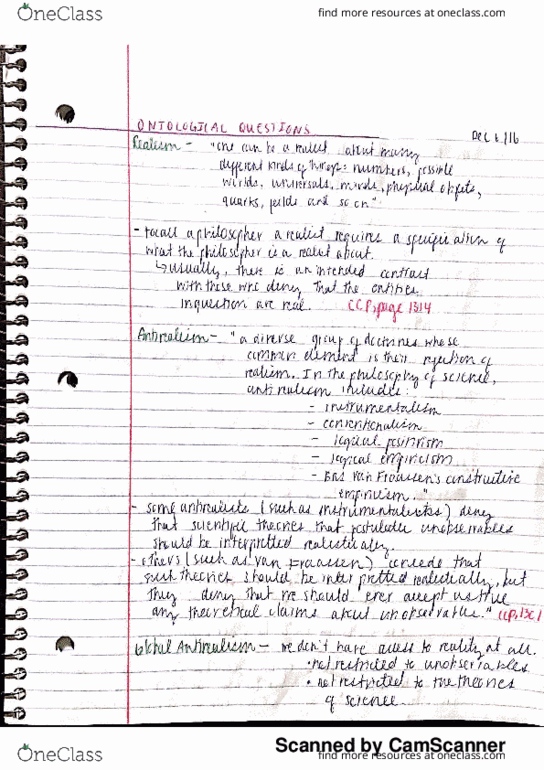 OneClass
find more resources at oneclass.com
ONTOLOGICAL QUESTIONS
Dec 6/16
Realism - "one can be a realist about many
different kinds of things: numbers, possible
worlds, universals, minds, physical objects,
quarks, fields and so on"
- to call a philosopher a realist requires a specification of
what the philosopher is a realist about.
↳ usually, there is an intended contrast
with those who deny that the entities
in question are real. CCP, page 1314
Antirealism - "a diverse group of doctrines whose
common element is their rejection of
realism. In the philosophy of science,
antirealism includes:
- instrumentalism
- conventionalism
- logical positivism
- logical empiricism
- Bas van Fraassen's constructive
empiricism."
- some antirealists (such as instrumentalists) deny
that scientific theories that postulate unobservables
should be interpretted realistically.
- others (such as van Fraassen) "concede that
such theories should be interpretted realistically, but
they deny that we should ever accept as true
any theoretical claims about unobservable." CCP, 1301
Global Antirealism - we don't have access to reality at all.
• not restricted to unobservables
• not restricted to the theories
of science
Scanned by CamScanner
OneClass
find more resources at oneclass.com